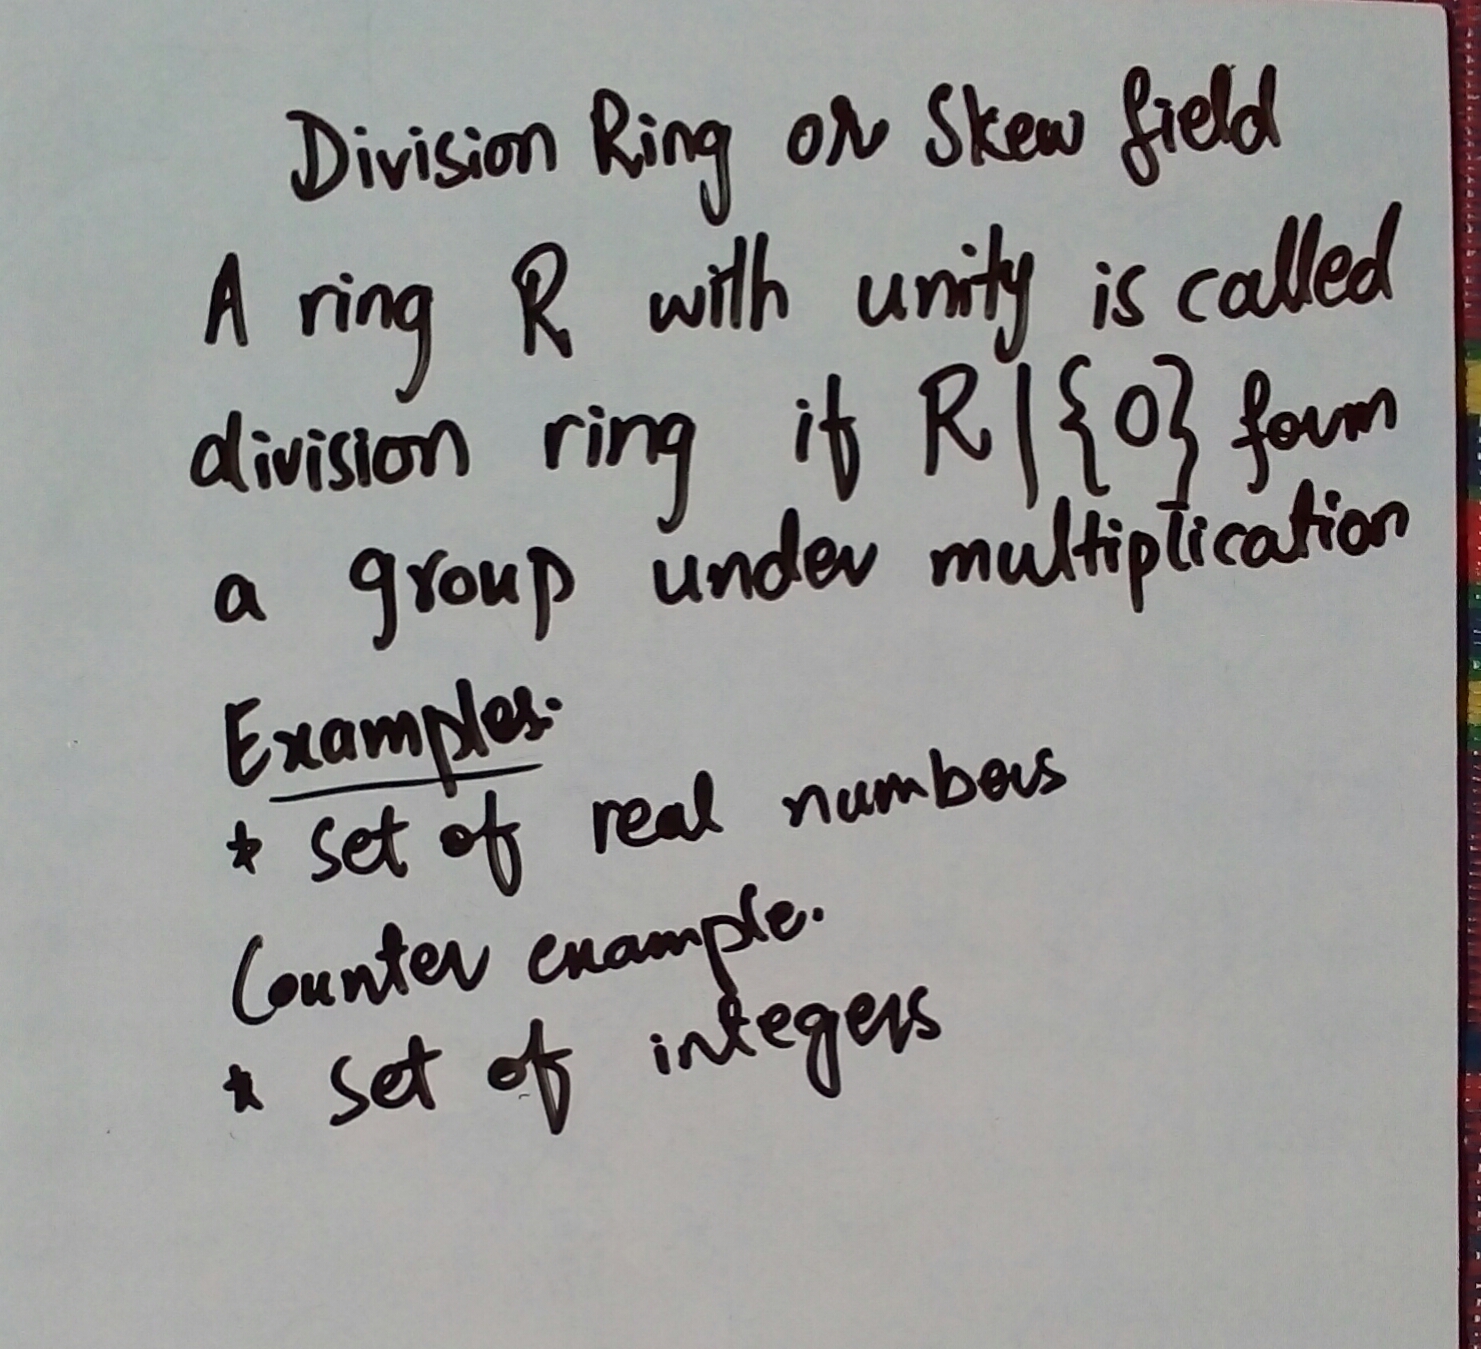 Division Ring or Skew field
A ring R with unity is called
division ring if R|{0} form
a group under multiplication
Examples.
* set of real numbers
Counter example.
* set of integers